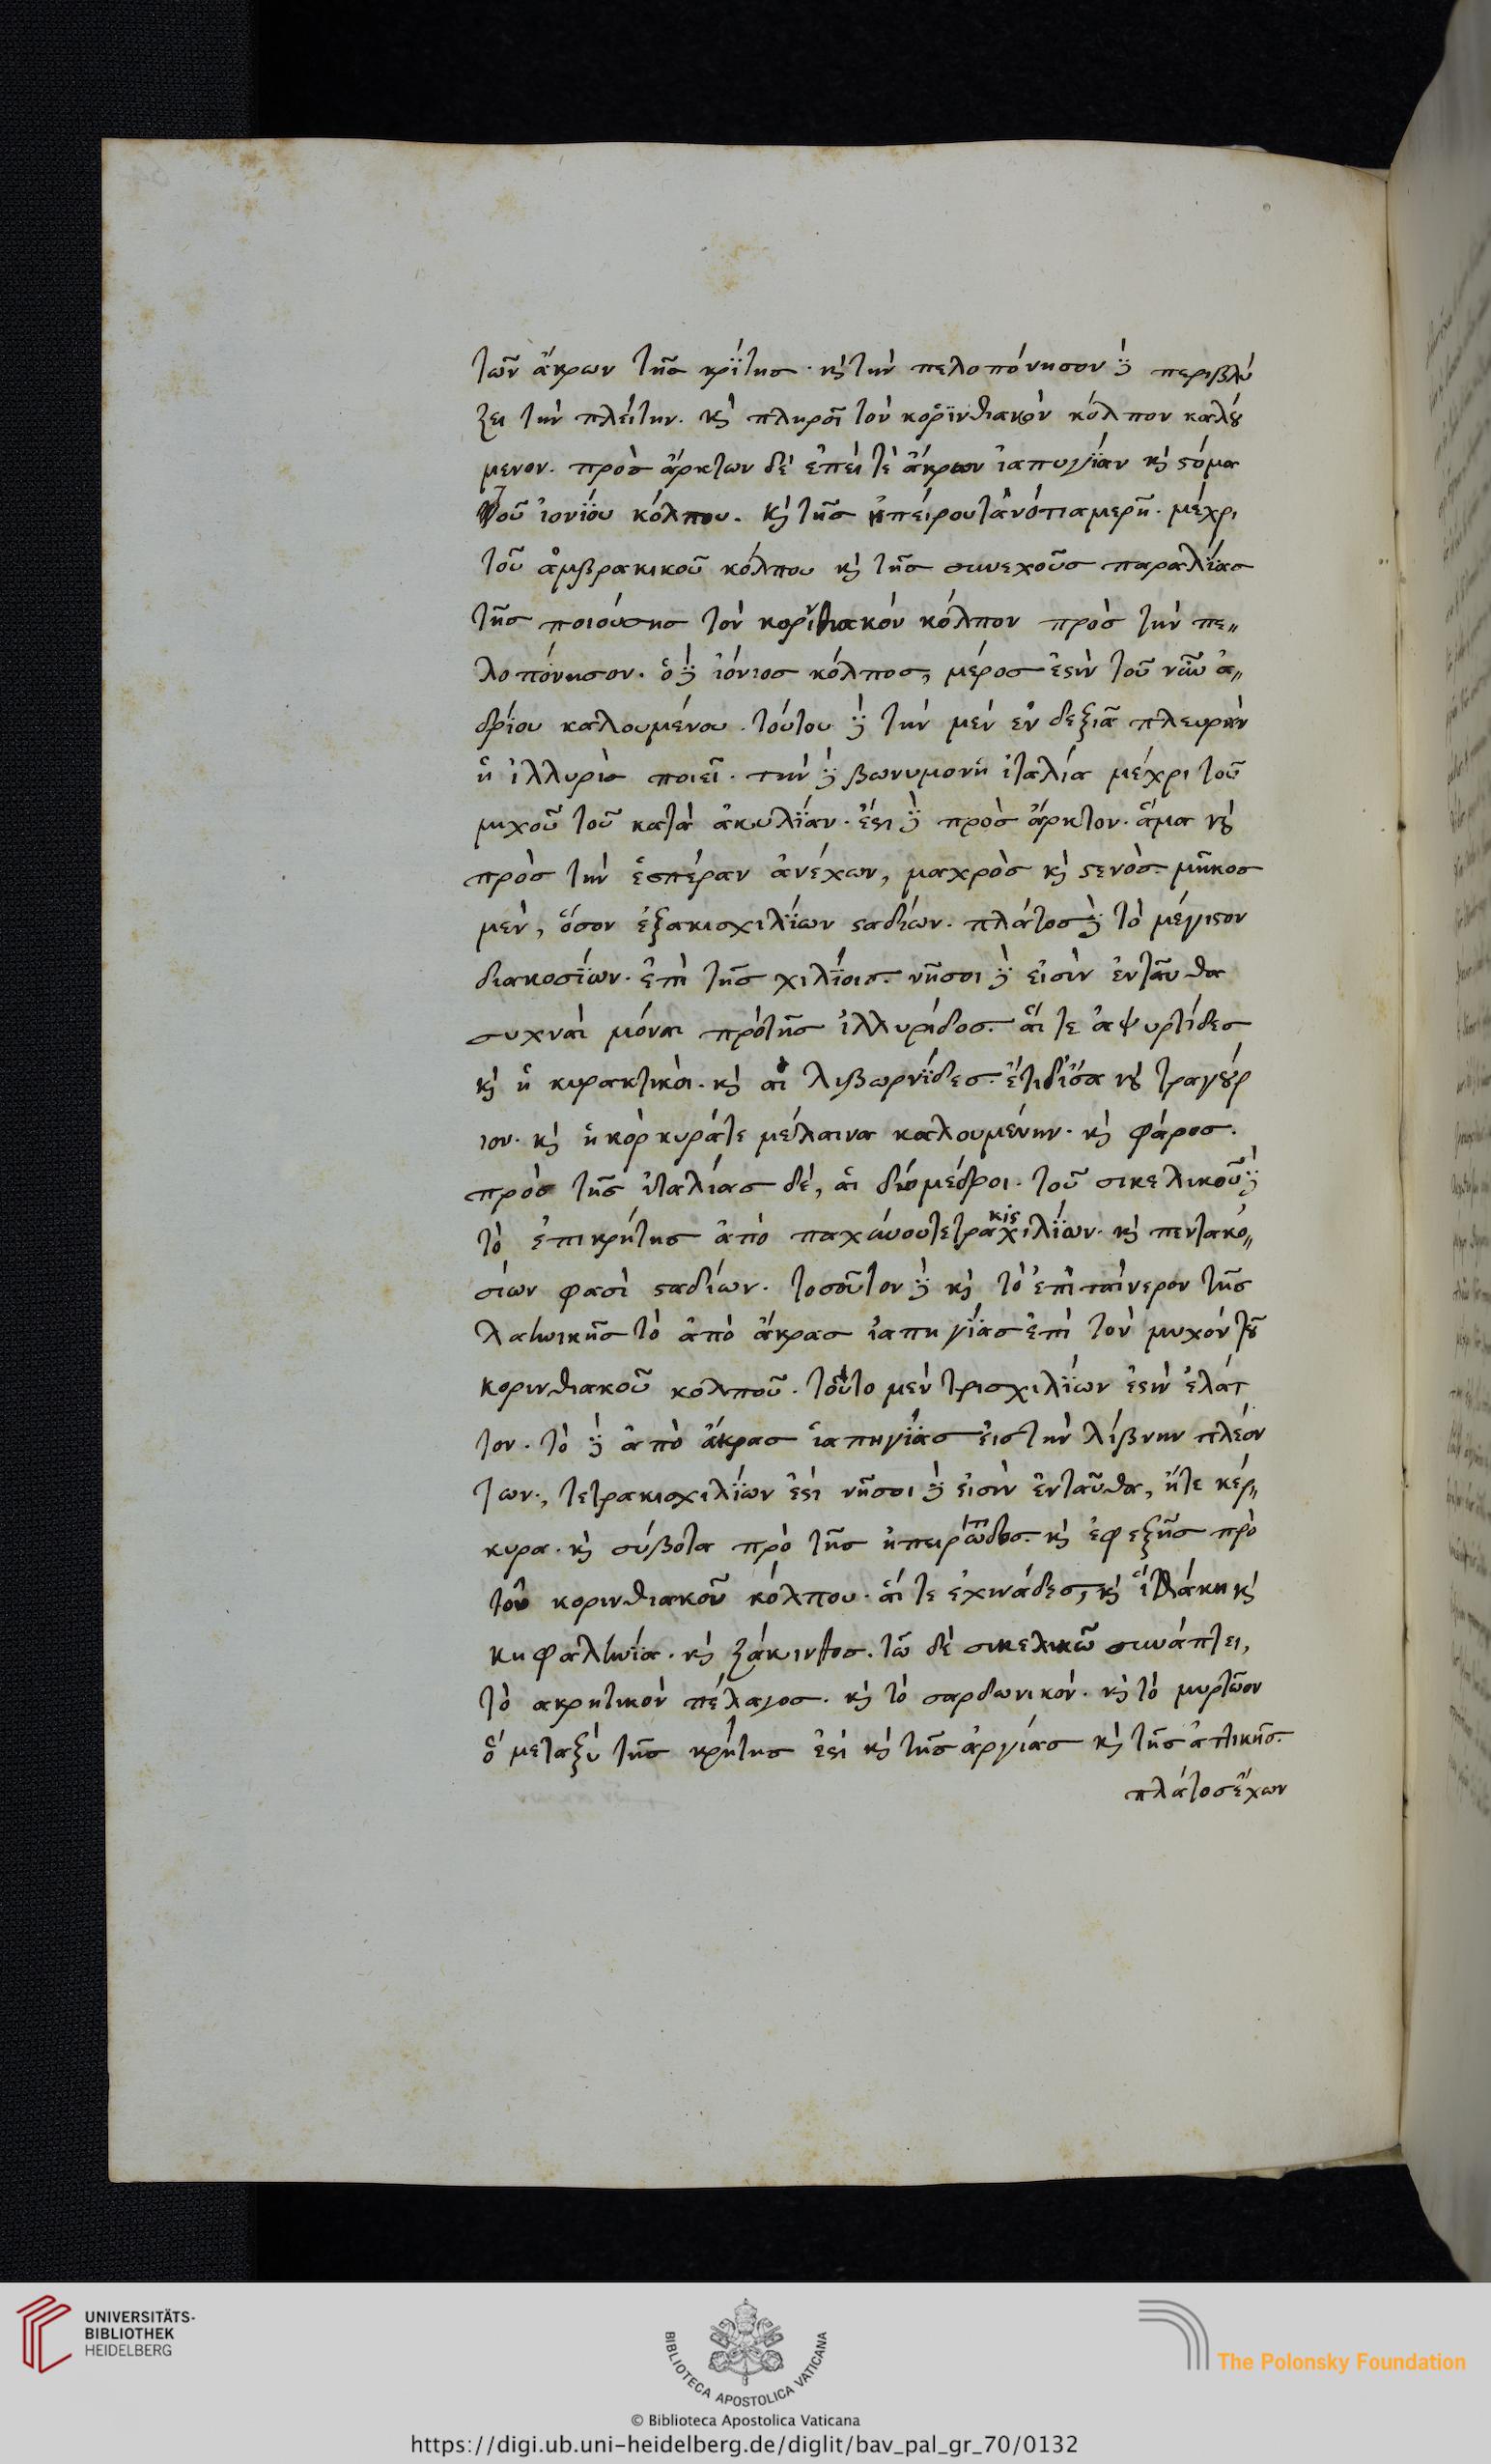 τῶν ἄκρων τῆς κρίτης. κὶ τὴν πελοπόνησον δὲ περιβλύ
ζει τὴν πλείτην. κὶ πληροῖ τὸν κορϊνθιακὸν κόλπον καλού
μενον. πρὸς ἄρκτων δὲ ἐπεί τὲ ἄκρων ἰαπυγίαν κὶ στόμα
τοῦ ἰονίου κόλπου. κὶ τῆς ἠπείρου τὰ νότια μερῆ. μέχρι
τοῦ ἀμβρακικοῦ κόλπου κὶ τῆς συνεχοῦς παραλίας
τῆς ποιούσης τὸν κορϊνθιακόν κόλπον πρὸς τὴν πε
λοπόνησον. ὁ δὲ ἰόνιος κόλπος, μέρος ἐστὶν τοῦ νῦν ἀ
δρίου καλουμένου. τούτου δὲ τὴν μὲν ἐν δεξιᾶ πλευρὰν
ἡ ἰλλυρὶς ποιεῖ. τὴν δὲ βωνυμονὴ ἰταλία μέχρι τοῦ
μυχοῦ τοῦ κατὰ ἀκυλίαν. ἔστι δὲ πρὸς ἄρκτον. ἅμα κὶ
πρὸς τὴν ἑσπέραν ἀνέχων, μαχρὸς κὶ στενὸς. μῆκος
μὲν, ὅσον ἑξακισχιλίων σταδίων. πλάτος δὲ τὸ μέγιστον
διακοσίων. ἐπὶ τῆς χιλίοις. νῆσοι δὲ εἰσὶν ἐνταῦθα
συχναὶ μόναι πρὸτῆς ἰλλυρίδος. αἵ τε ἀψυρτίδες
κὶ ἡ κυρακτικὰι. κὶ αἱ λιβωρνίδες. ἔτιδ᾽ἴσα κὶ τραγούρ
ιον. κὶ ἡ κόρκυράτε μέλαινα καλουμένην. κὶ φάρος.
πρὸς τῆς ἰταλίας δὲ, αἱ διομέδροι. τοῦ σικελικοῦ δὲ
τὸ ἐπικρήτης ἀπὸ παχύνου τετρακισχιλίων. κὶ πεντακο
σίων φασὶ σταδίων. τοσοῦτον δὲ κὶ τὸ ἐπὶ ταίνερον τῆς
λακωνικῆς τὸ ἀπὸ ἄκρας ἰαπηγίας ἐπὶ τὸν μυχόν τοῦ
κορινθιακοῦ κόλπου. τοῦτο μὲν τρισχιλίων ἐστὶν ἐλάτ
τον. τὸ δὲ ἀπὸ ἄκρας ἰαπηγίας εἰς τὴν λίβυην πλεόν
των., τετρακισχιλίων ἐστὶ νῆσοι δὲ εἰσὶν ἐνταῦθα, ἥτε κέρ
κυρα. κὶ σύβοτα πρὸ τῆς ἠπειρώτιδος. κὶ ἐφεξῆς πρὸ
τοῦ κορινθιακοῦ κόλπου. αἵ τε ἐχινάδες, κὶ ἰθάκη κὶ
κηφαλωνία. κὶ ζάκινθος. τῶ δὲ σικελικῶ συνάπτει,
τὸ ακρητικὸν πέλαγος. κὶ τὸ σαρδωνικόν. κὶ τὸ μυρτῶον
ὅ μεταξὺ τῆς κρήτης ἐστὶ κὶ τῆς ἀργίας κὶ τῆς ἀττικῆς.
πλάτοσἔχων
UNIVERSITÄTS-
BIBLIOTHEK
HEIDELBERG
BIBLIOTECA APOSTOLICA VATICANA
The Polonsky Foundation
© Biblioteca Apostolica Vaticana
https://digi.ub.uni-heidelberg.de/diglit/bav_pal_gr_70/0132